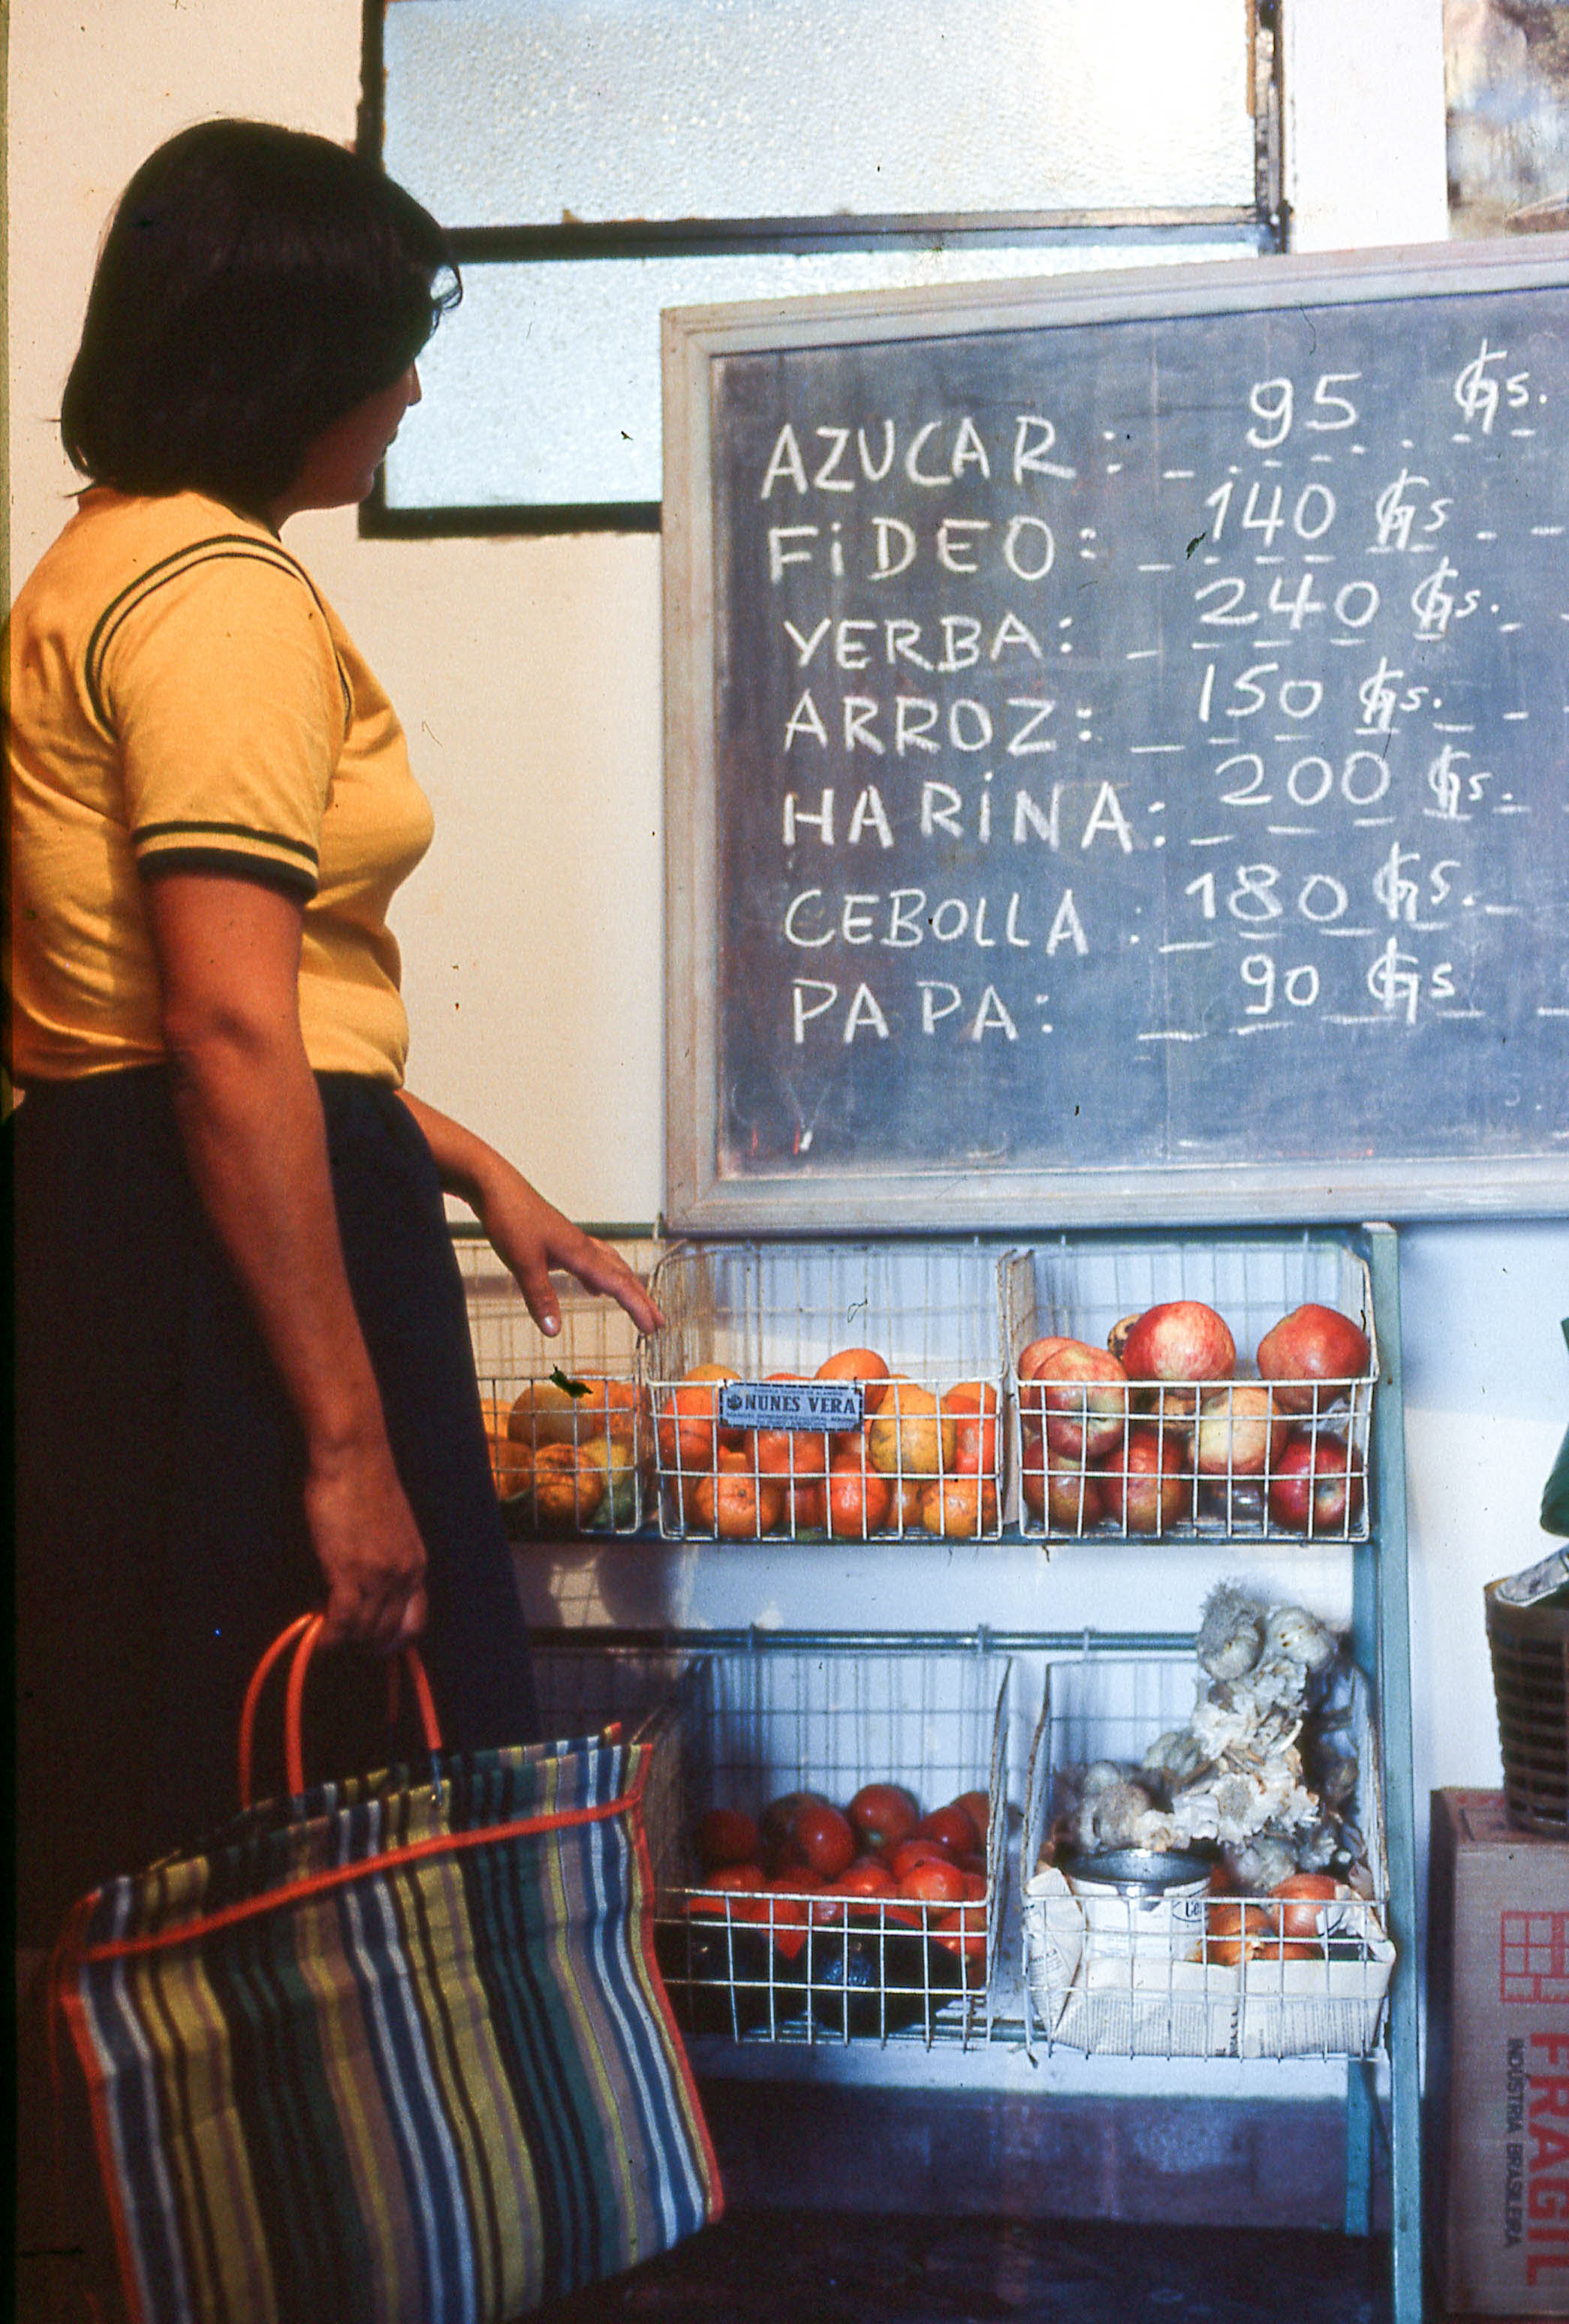 AZUCAR: 95 Gs.
FiDEO: 140 Gs
YERBA: 240 Gs.
ARROZ: 150 Gs.
HARiNA: 200 Gs.
CEBOLLA: 180 Gs.
PAPA: 90 Gs
NUNES VERA
FRAGIL
INDÚSTRIA BRASILEIRA